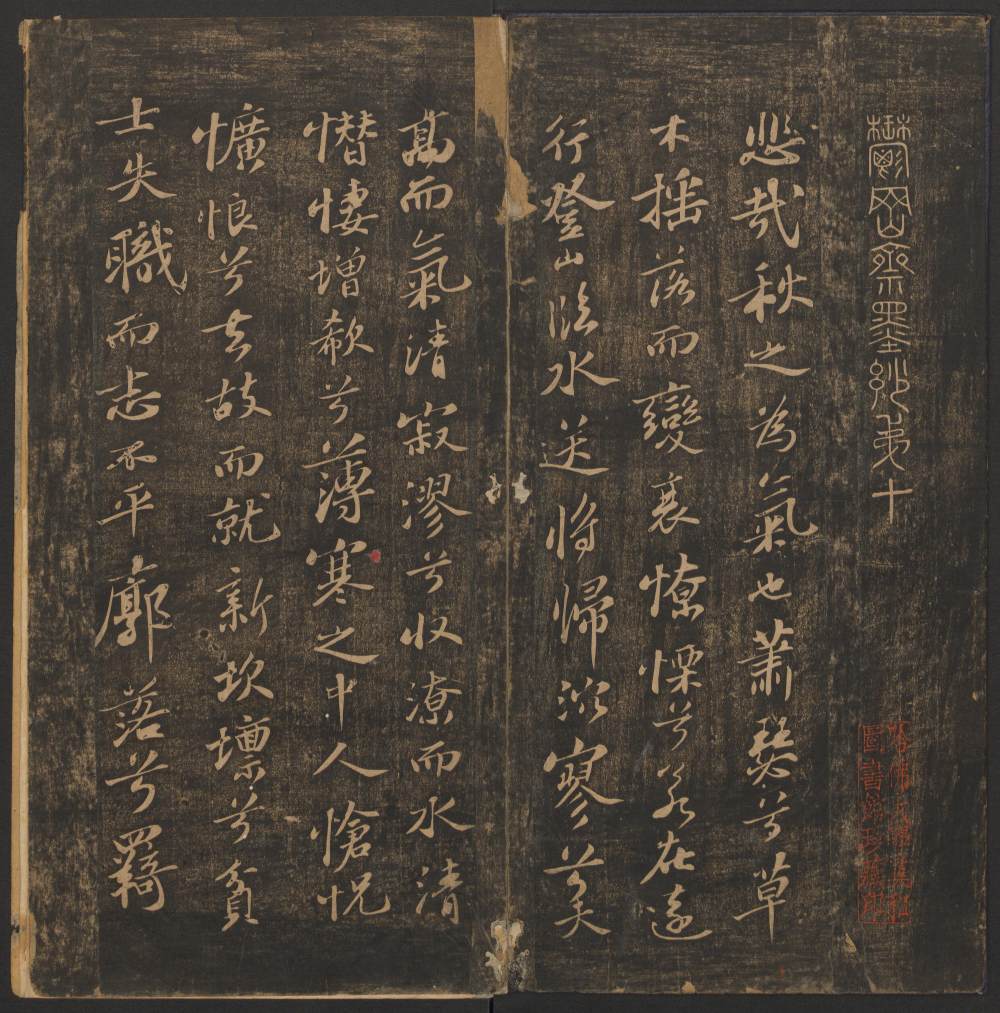 鬱岡齋墨妙弟十
悲哉秋之為氣也蕭瑟兮草
木揺落而變衰憭慄兮若在遠
行登山臨水送將歸泬寥兮天
高而氣清寂漻兮收潦而水清
憯悽增欷兮薄寒之中人愴怳
懭悢兮去故而就新坎壈兮貧
士失職而志不平廓落兮羇
哈佛大學漢和
圖書館珍藏印